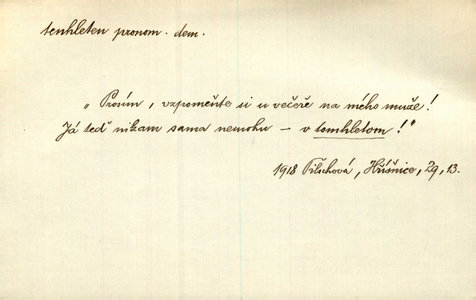 tenhleten pronom. dem.
„Prosím, vzpomeňte si u večeře na mého muže!
Já teď nikam sama nemohu – v tomhletom!“
1918 Tilschová, Hříšnice, 29, 13.